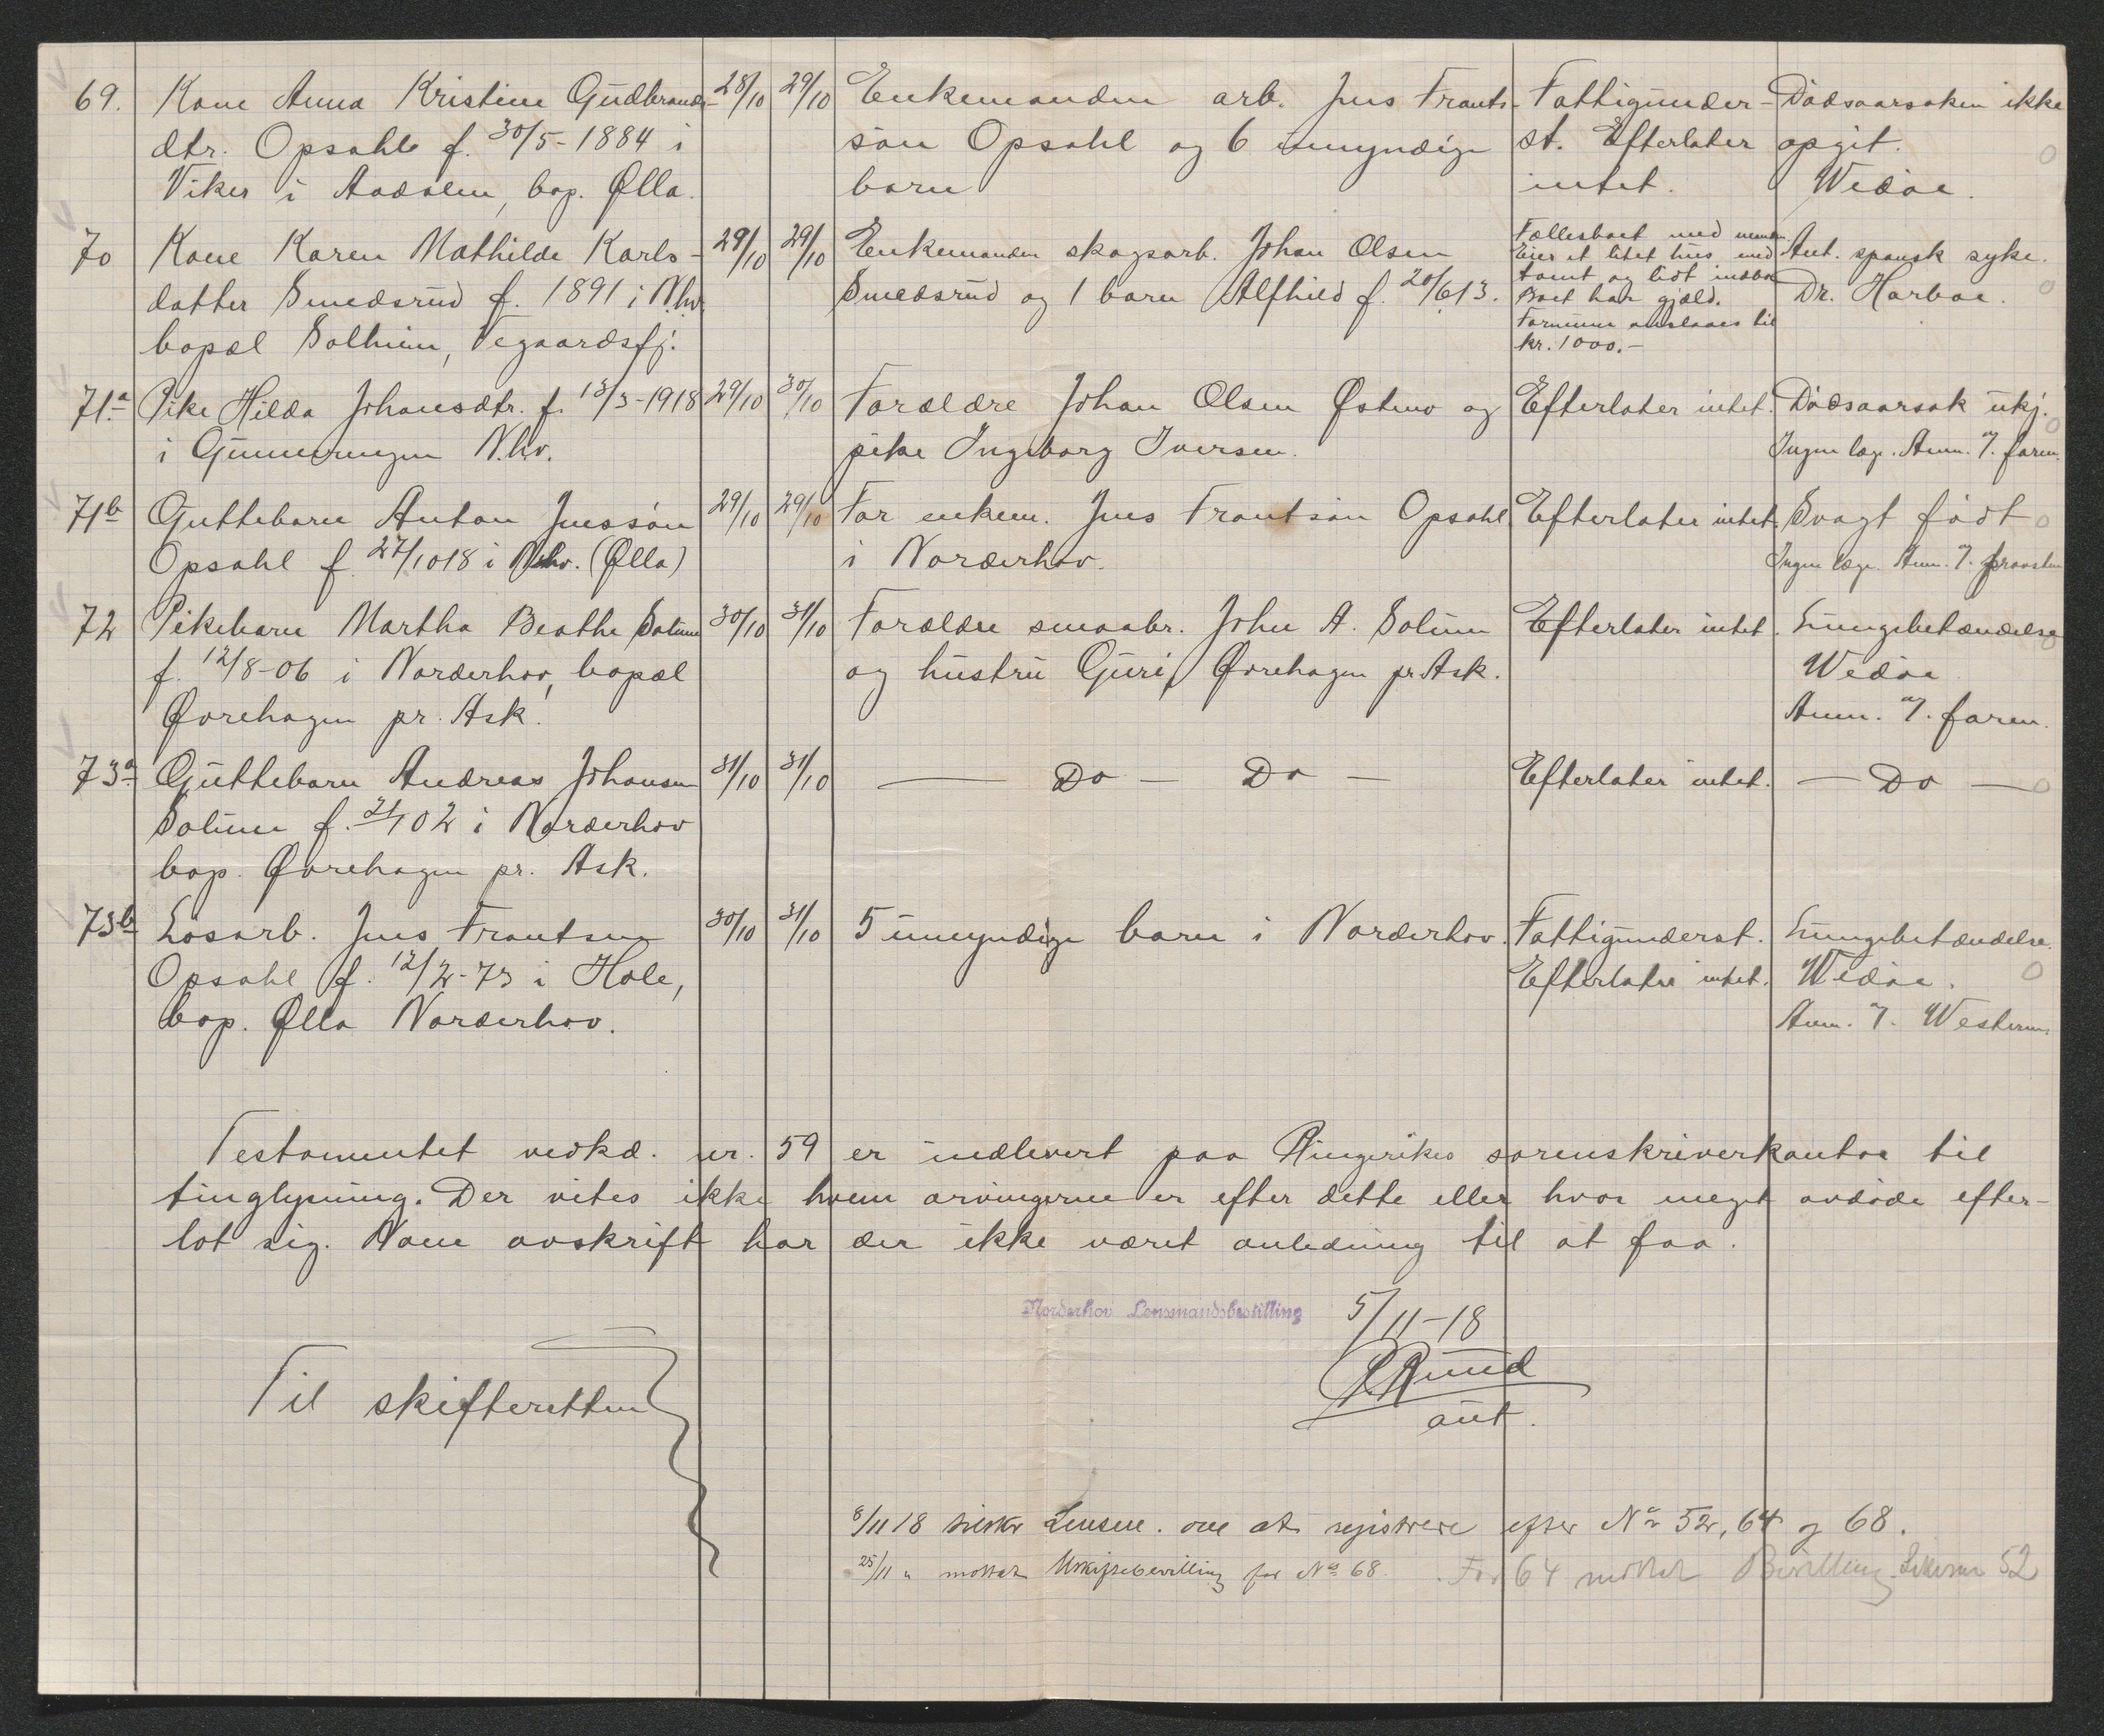 69. Kone Anna Kristine Gudbrands- 28/10 29/10 Enkemanden arb. Jens Frants- Fattigunder- Dødsaarsaken ikke
dtr. Opsahl f. 30/5-1884 i søn Opsahl og 6 umyndige st. Efterlater opgit.
Viker i Aadalen, bop. Ølla. barn intet. Wedøe.
70 Kone Karen Mathilde Karls- 29/10 29/10 Enkemanden skogsarb. Johan Olsen Fællesboet med
datter Smedsrud f. 1891 i Nhv. Smedsrud og 1 barn Alfhild f. 20/6 13. Eier et litet hus med Ant. spansk syke.
bopæl Solheim, Vegaardsfj. tomt og lidt indbo Dr. Harboe.
Boet har gjæld.
Formuen anslaaes til
kr. 1000.-
71a Pike Hilda Johansdtr. f. 13/3-1918 29/10 30/10 Forældre Johan Olsen Østmo og Efterlater intet. Dødsaarsak ukj.
i Nhv. pike Ingeborg Iversen. Ingen læge. Anm. af faren.
71b Guttebarn Anton Jenssøn 29/10 29/10 Far enkem. Jens Frantsøn Opsahl Efterlater intet. Svagt født
Opsahl f. 27/10 18 i Nhv. (Ølla) i Norderhov. Ingen læge. Anm. af
72 Pikebarn Martha Beathe Solum 30/10 31/10 Forældre smaabr. John A. Solum Efterlater intet. Lungebetændelse
f. 12/8-06 i Norderhov, bopæl og hustru Guri, Øvrehagen pr. Ask. Wedøe
Øvrehagen pr. Ask. Anm. af faren.
73a Guttebarn Andreas Johansen 31/10 31/10 — Do — Do — Efterlater intet. — Do —
Solum f. 02 i Norderhov
bop. Øvrehagen pr. Ask.
73b Løsarb. Jens Frantsen 30/10 31/10 5 umyndige barn i Norderhov. Fattigunderst. Lungebetændelse.
Opsahl f. 12/2-73 i Hole, Efterlater intet. Wedøe.
bop. Ølla Norderhov. Anm. af Western.
Testamentet vedkd. nr. 59 er indlevert paa Ringerikes sorenskriverkontor til
tinglysning. Der vites ikke hvem arvingerne er efter dette eller hvor meget avdøde efter-
lot sig. Noen avskrift har der ikke været anledning til at faa.
Norderhov Lensmandsbestilling 5/11-18
Ruud
aut.
Til skifteretten
8/11 18 tilskr Lensm. om at registrere efter No 52, 64 og 68.
25/11 " mottat Uskiftebevilling for No 68. For 64 mottat Bevilling. 52